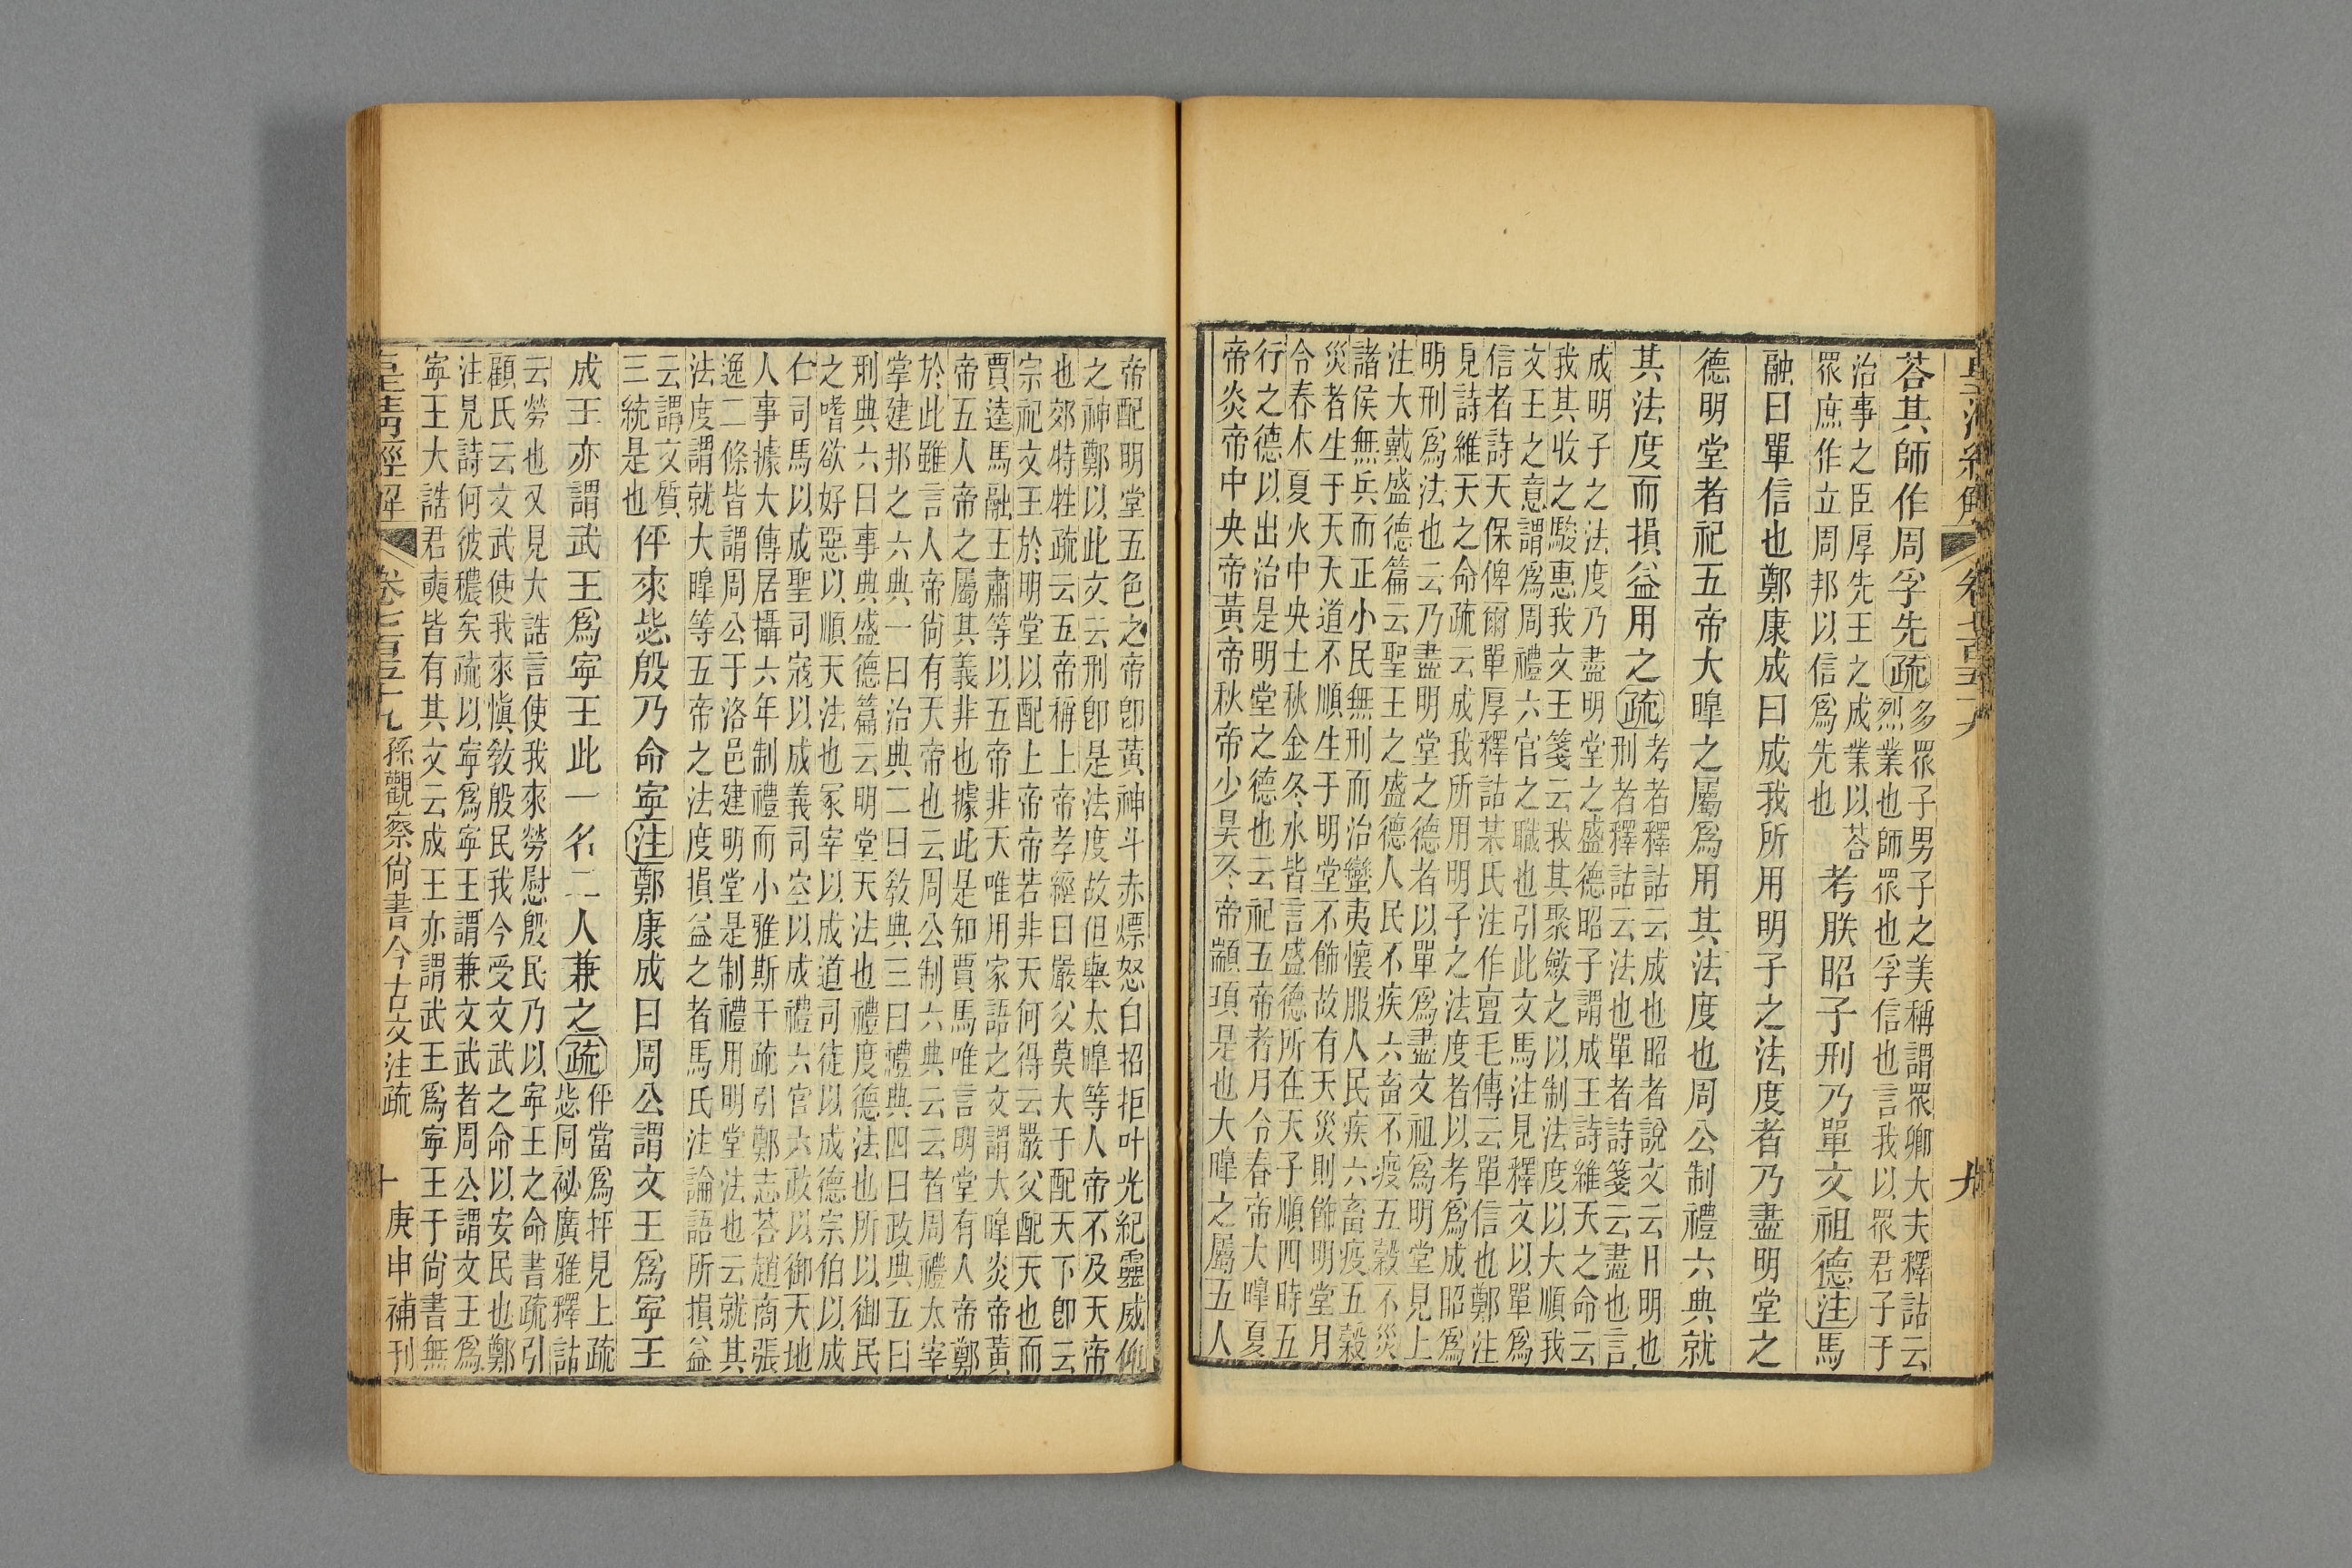 荅其師作周孚先疏多眾子男子之美稱謂眾卿大夫釋詁云
烈業也師眾也孚信也言我以眾君子于
治事之臣厚先王之成業以荅
眾庶作立周邦以信爲先也考朕昭子刑乃單文祖德注馬
融曰單信也鄭康成曰成我所用明子之法度者乃盡明堂之
德明堂者祀五帝大皞之屬爲用其法度也周公制禮六典就
其法度而損益用之疏考者釋詁云成也昭者說文云日明也
刑者釋詁云法也單者詩箋云盡也言
成明子之法度乃盡明堂之盛德昭子謂成王詩維天之命云
我其收之駿惠我文王箋云我其聚斂之以制法度以大順我
文王之意謂爲周禮六官之職也引此文馬注見釋文以單爲
信者詩天保俾爾單厚釋詁某氏注作亶毛傳云單信也鄭注
見詩維天之命疏云成我所用明子之法度者以考爲成昭爲
明刑爲法也云乃盡明堂之德者以單爲盡文祖爲明堂見上
注大戴盛德篇云聖王之盛德人民不疾六畜不疫五穀不災
諸侯無兵而正小民無刑而治蠻夷懷服人民疾六畜疫五穀
災者生于天天道不順生于明堂不飾故有天災則飾明堂月
令春木夏火中央土秋金冬水皆言盛德所在天子順四時五
行之德以出治是明堂之德也云祀五帝者月令春帝大皞夏
帝炎帝中央帝黃帝秋帝少昊冬帝顓頊是也大皞之屬五人
九
帝配明堂五色之帝卽黃神斗赤熛怒白招拒叶光紀靈威仰
之神鄭以此文云刑卽是法度故但舉太皞等人帝不及天帝
也郊特牲疏云五帝稱上帝孝經曰嚴父莫大于配天下卽云
宗祀文王於明堂以配上帝帝若非天何得云嚴父配天也而
賈逵馬融王肅等以五帝非天唯用家語之文謂大皞炎帝黃
帝五人帝之屬其義非也據此是知賈馬唯言明堂有人帝鄭
於此雖言人帝尙有天帝也云周公制六典云云者周禮太宰
掌建邦之六典一曰治典二曰敎典三曰禮典四曰政典五曰
刑典六曰事典盛德篇云明堂天法也禮度德法也所以御民
之嗜欲好惡以順天法也冢宰以成道司徒以成德宗伯以成
仁司馬以成聖司寇以成義司空以成禮六官六政以御天地
人事據大傳居攝六年制禮而小雅斯干疏引鄭志荅趙商張
逸二條皆謂周公于洛邑建明堂是制禮用明堂法也云就其
法度謂就大皞等五帝之法度損益之者馬氏注論語所損益
云謂文質
三統是也伻來毖殷乃命寧注鄭康成曰周公謂文王爲寧王
成王亦謂武王爲寧王此一名二人兼之疏伻當爲抨見上疏
毖同祕廣雅釋詁
云勞也又見大誥言使我來勞慰殷民乃以寧王之命書疏引
顧氏云文武使我來愼敎殷民我今受文武之命以安民也鄭
注見詩何彼穠矣疏以寧爲寧王謂兼文武者周公謂文王爲
寧王大誥君奭皆有其文云成王亦謂武王爲寧王于尙書無
皇淸經解 卷七百五十九 孫觀察尙書今古文注疏 十 庚申補刊